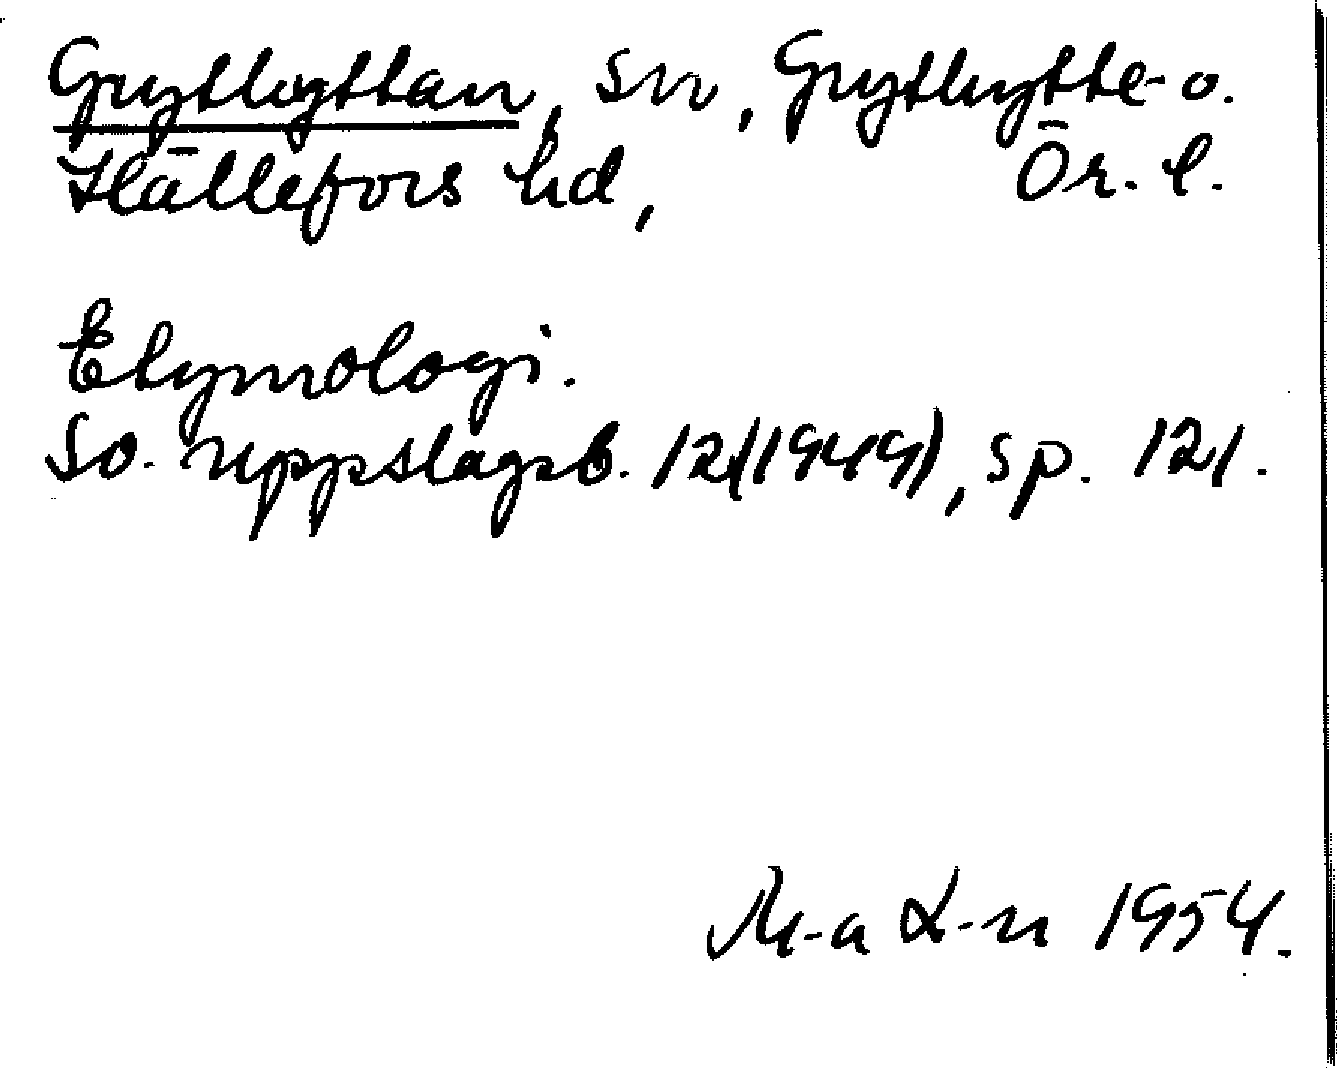 Grythyttan, sn, Grythytte- o.
Hällefors hd, Ör. l.
Etymologi.
Sv. Uppslagsb. 12 (1949), sp. 121.
M-a L-n 1954.